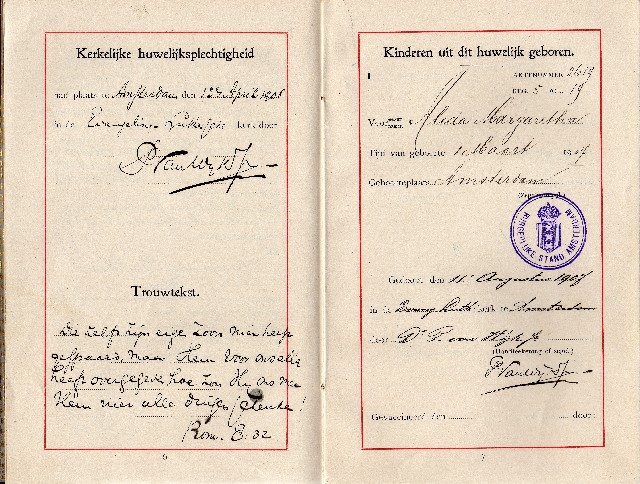 Kerkelijke huwelijksplechtigheid
had plaats te Amsterdam den 12 April 1906
in de Evangelisch Luthersche kerk door
Trouwtekst.
Die zelfs zijn eigen zoon niet heeft
gespaard, maar Hem voor ons allen
heeft overgegeven, hoe zou Hij ons met
Hem niet alle dingen schenken!
Rom. 8:32
6
Kinderen uit dit huwelijk geboren.
1
AKTENUMMER 2619
REG. 5 FOL. 19
Alida Margaretha
Tijd van geboorte 1 Maart 1907
Geboorteplaats Amsterdam
BURGERLIJKE STAND AMSTERDAM
Gedoopt den 11 Augustus 1907
in de kerk te Amsterdam
door Ds P. van Wijk Jr
(Handteekening of zegel.)
P van Wijk Jr
Gevaccineerd den door:
7